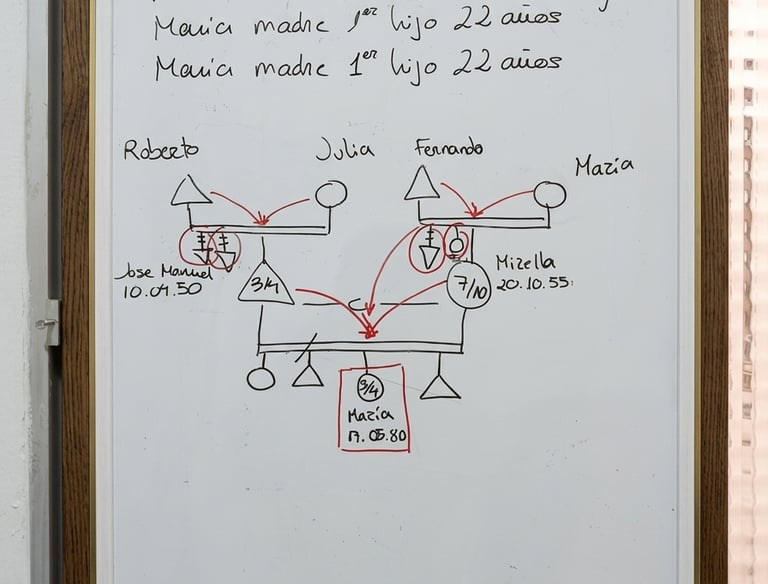 Maria madre 1er hijo 22 años
Maria madre 1er hijo 22 años
Roberto
Julia
Fernando
Maria
Jose Manuel
10.09.50
3/4
7/10
Mirella
20.10.55
3/4
Maria
17.05.80